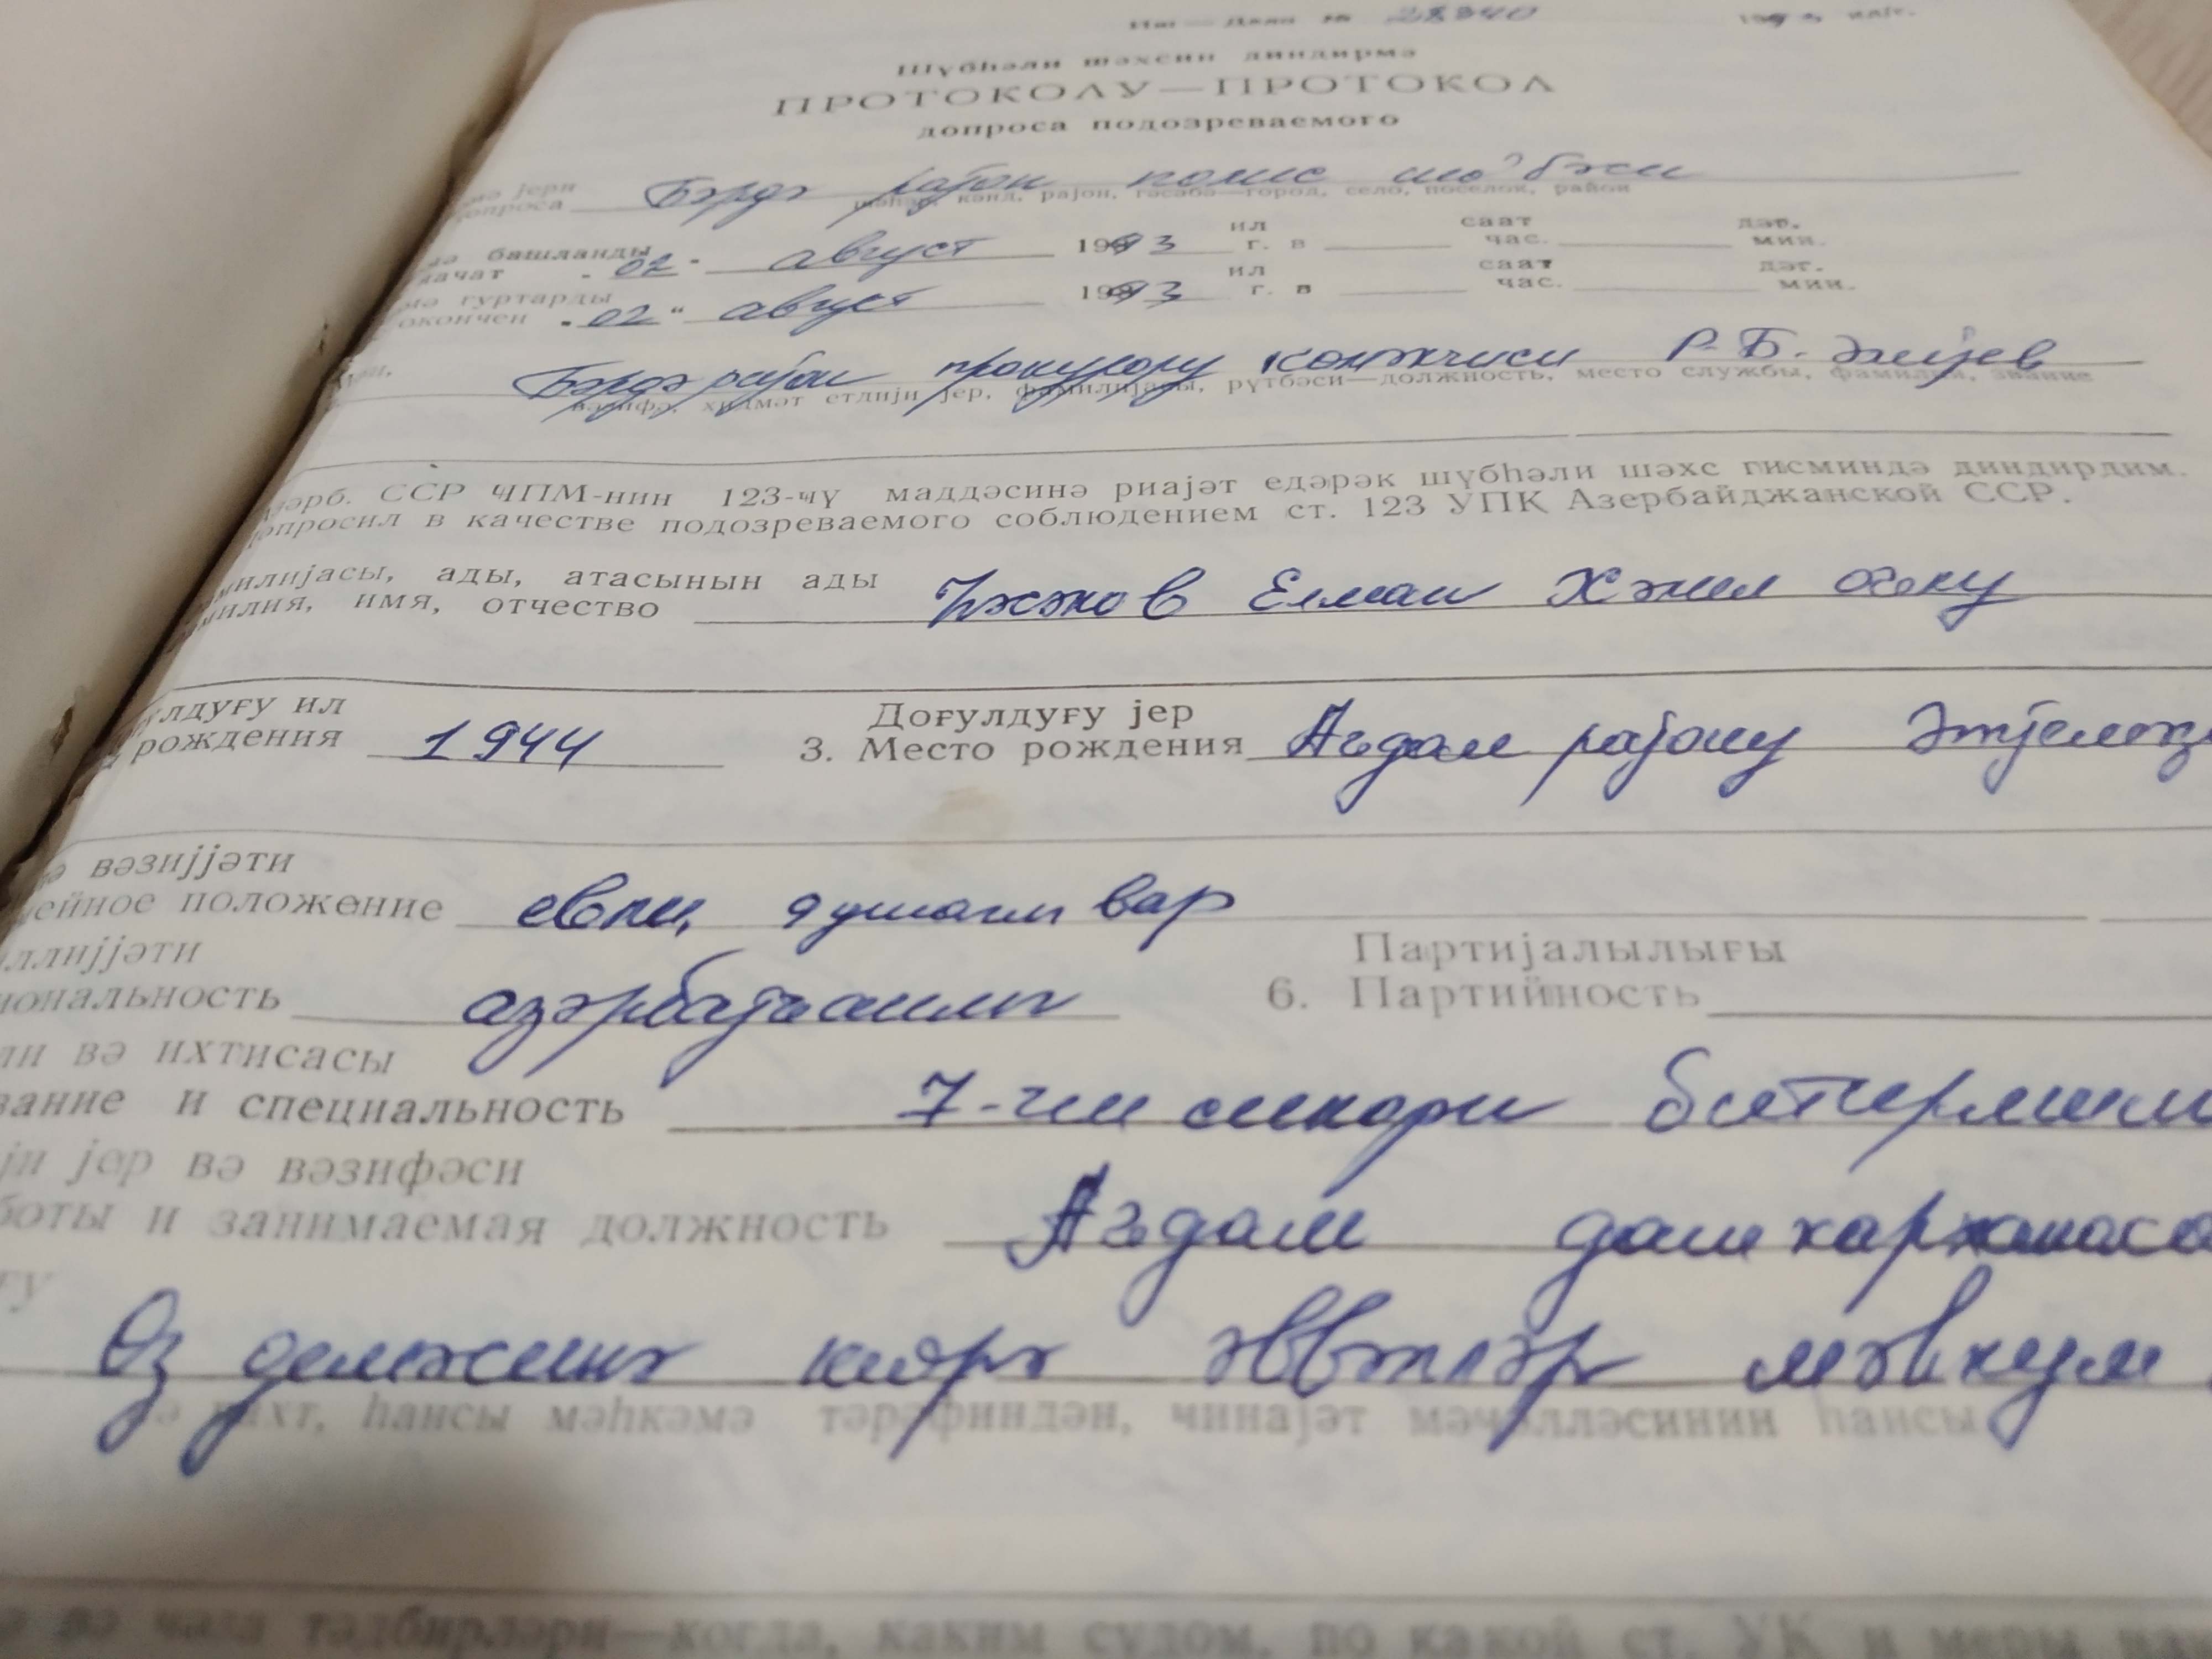 Иш — Дело № 28240
Шүбһәли шәхсин диндирмә
ПРОТОКОЛУ—ПРОТОКОЛ
допроса подозреваемого
јери
допроса Бәрдә рајон полис шө'бәси
шәһәр, кәнд, рајон, гәсәбә—город, село, поселок, район
башланды ил саат дәг.
начат „02" август 1993 г. в час. мин.
гуртарды ил саат дәг.
окончен „02" август 1993 г. в час. мин.
Бәрдә рајон прокурору көмәкчиси Р. Б. Әлијев
вәзифә, хидмәт етдији јер, фамилијасы, рүтбәси—должность, место службы, фамилия, звание
Азәрб. ССР ЧПМ-нин 123-чү маддәсинә риајәт едәрәк шүбһәли шәхс гисминдә диндирдим.
допросил в качестве подозреваемого соблюдением ст. 123 УПК Азербайджанской ССР.
милијасы, ады, атасынын ады
милия, имя, отчество Елман Хәлил оғлу
улдуғу ил Доғулдуғу јер
рождения 1944 3. Место рождения Ағдам рајону
вәзијјәти
ейное положение евли, 9 ушағы вар
ллијјәти Партијалылығы
иональность азәрбајҹанлы 6. Партийность
ли вә ихтисасы
вание и специальность 7-чи синфи битирмиш
ји јер вә вәзифәси
боты и занимаемая должность Ағдам даш карханасы
ғу
Өз демәсинә көрә әввәлләр мәһкум
вахт, һансы мәһкәмә тәрәфиндән, чинајәт мәчәлләсинин һансы
вә чәза тәдбирләри—когда, каким судом, по какой ст. УК и меры нак